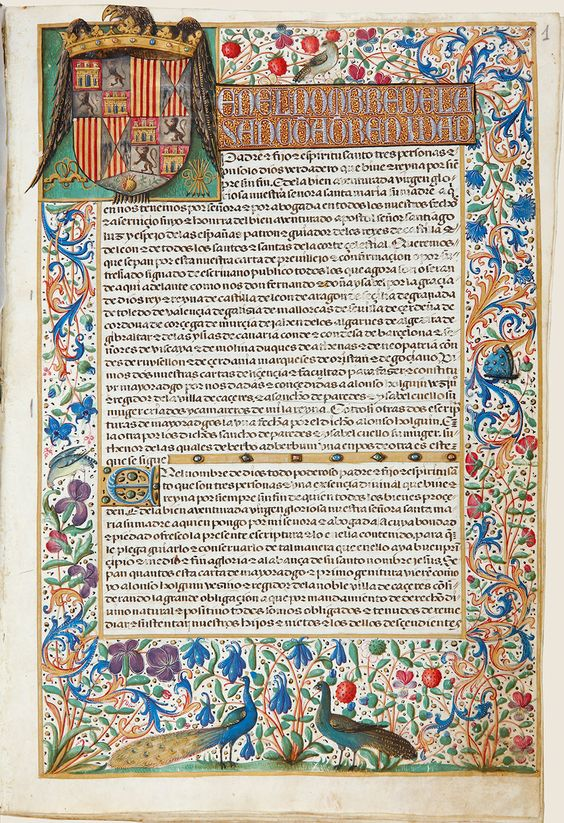 1
EN EL NONBRE DE LA
SANTISSIMA TRENIDAD
Padre & fijo & espiritu santo tres personas &
un solo dios verdadero que bive & reyna por siē
pre sin fin. E de la bien aventurada virgen glo
riosa nuestra señora santa maria su madre a q̄
en nos tenemos por señora & por abogada en todos los nuestros fechos
& a servicio suyo & a honrra del bien aventurado apostol señor santiago
luz & espejo de las españas patron & guiador de los reyes de castilla
& de leon & de todos los santos & santas de la corte celestial. Queremos
que sepan por esta nuestra carta de previllejo & confirmacion o por su
treslado signado de escrivano publico todos los que agora son o seran
de aqui adelante como nos don fernando & doña ysabel por la gracia
de dios rey & reyna de castilla de leon de aragon de secilia de granada
de toledo de valencia de galizia de mallorcas de sevilla de cerdeña de
cordova de corcega de murcia de jahen de los algarves de algezira de
gibraltar & de las yslas de canaria conde & condesa de barcelona & se
ñores de viscaya & de molina duques de athenas & de neopatria cōn
des de rruysellon & de cerdania marqueses de oristan & de gociano. Por
nos nuestras cartas de licencia & facultad para fazer & constituir
por mayoradgo por nos dadas & concedidas a alonso holguin vez̄i
& regidor de la villa de caceres & a sancho de paredes & ysabel cuello su
muger criados & camareros de mi la reyna. E otrosi otras dos escrip
turas de mayoradgos la una fecha por el dicho alonso holguin. E
la otra por los dichos sancho de paredes & ysabel cuello su muger. su
thenor de las quales de berbo ad berbum una en pos de otra es este
que se sigue
En el nombre de dios todo poderoso padre & fijo & espiritu sā
to que son tres personas & una esencia divinal que bive &
reyna por siempre sin fin de quien todos los bienes proce
E de la bien aventurada virgen gloriosa nuestra señora santa ma
ria su madre a quien pongo por mi señora & abogada a cuya honor
& piedad ofresco la presente escriptura & lo en ella contenido. para q̄
le plega guiarlo & conservarlo de tal manera que en ello aya buen prī
cipio & medio & fin a gloria & alabança de su santo nombre jesus. Se
pan quantos esta carta de mayoradgo & primo genitura vieren como
yo alonso holguin vezino & regidor de la noble villa de caceres consi
derando la grande obligacion a que por mandamiento de derecho di
vino natural & positivo todos somos obligados & tenudos de reme
diar & sustentar nuestros hijos & nietos & los dellos descendientes